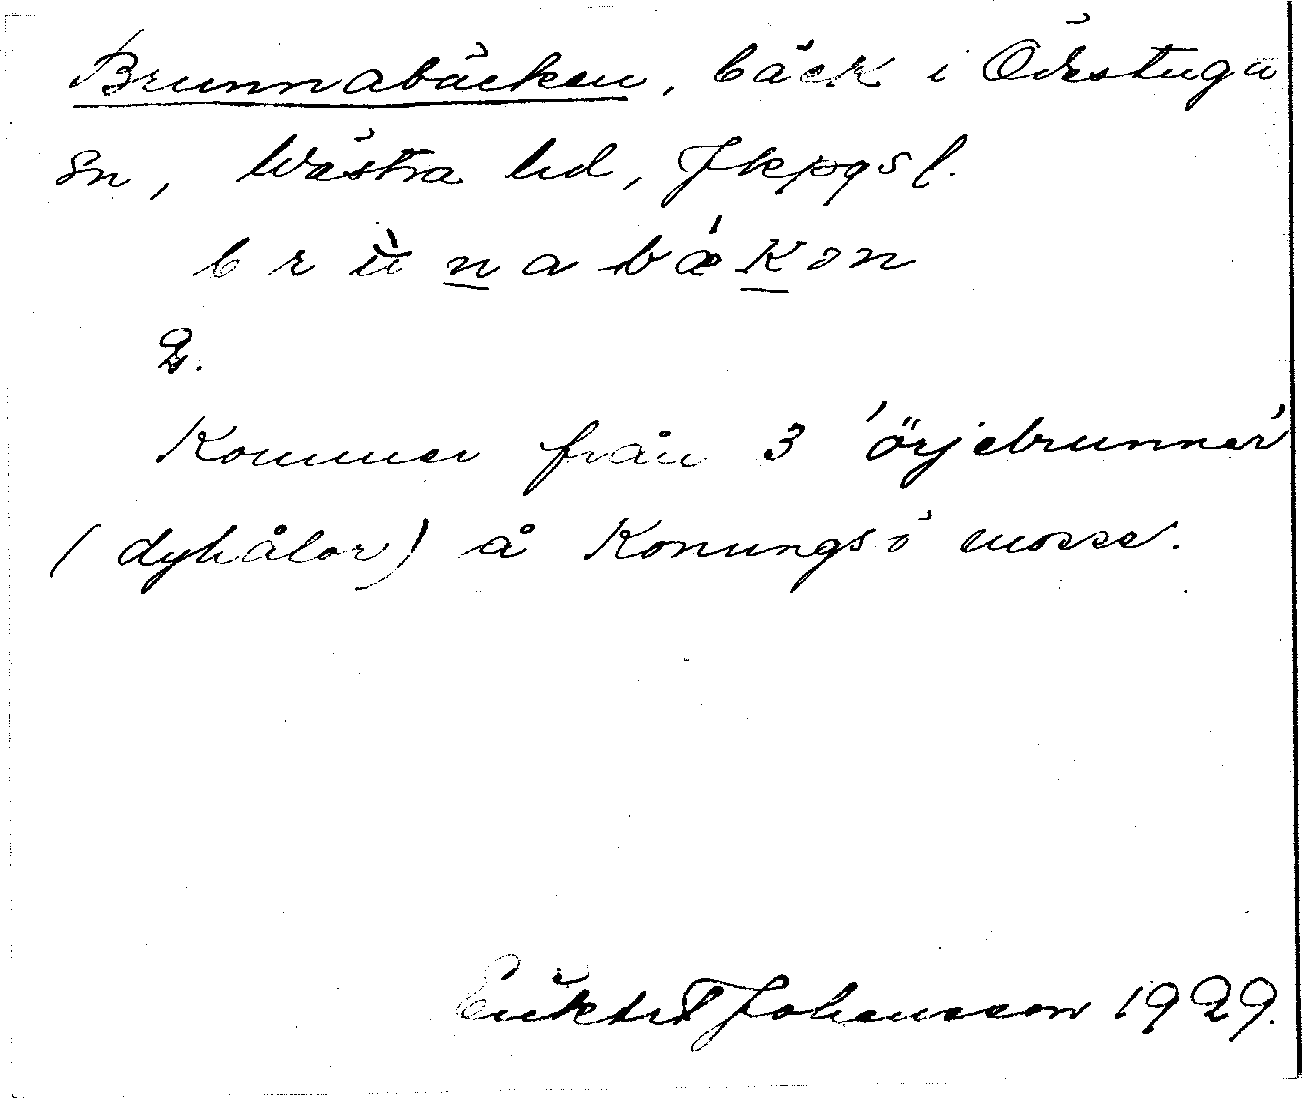 Brunnabäcken, bäck i Öxstuga
sn, Västra hd, Jkpgs l.
brùnabǽkon
2.
Kommer från 3 'örjebrunner'
(dyhålor) å Konungsö mosse.
Johansson 1929.